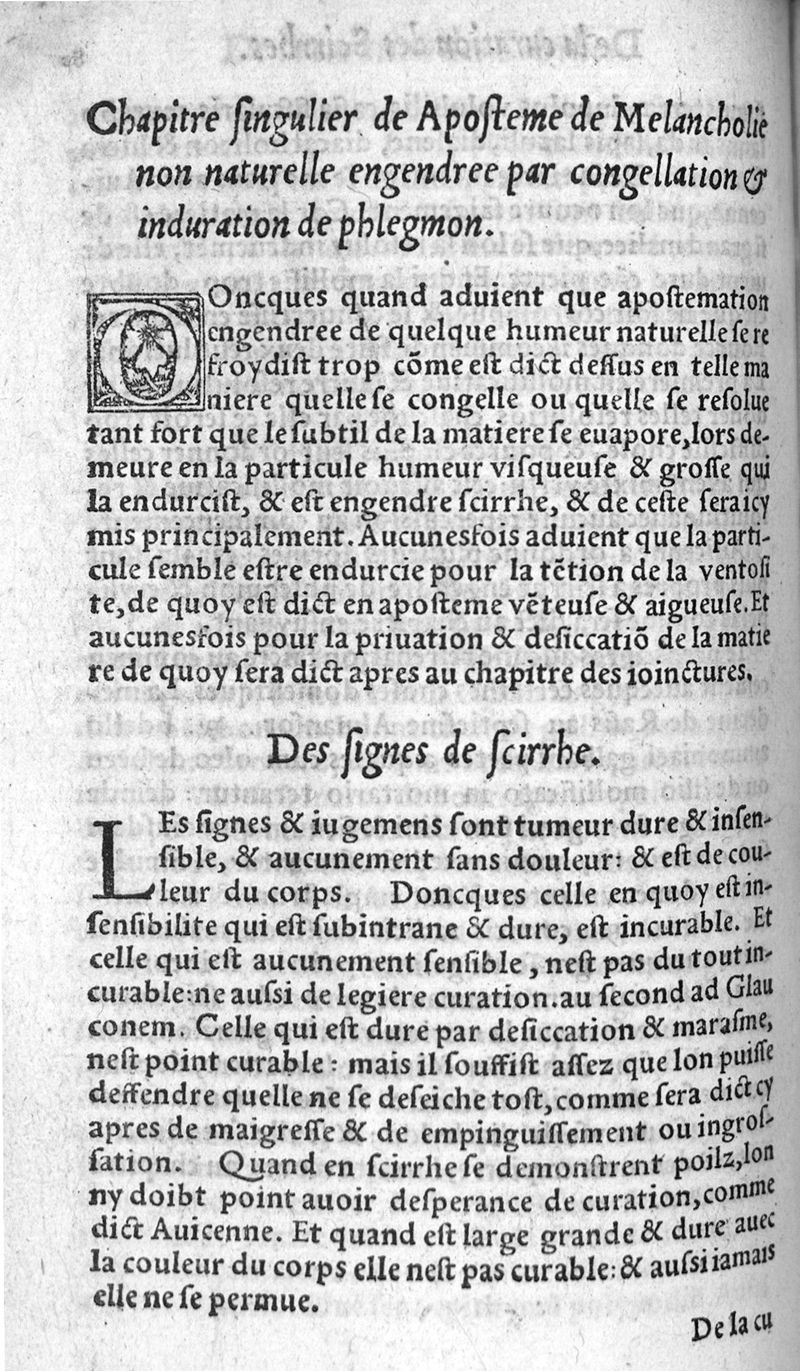 Chapitre ſingulier de Apoſteme de Melancholie
non naturelle engendree par congellation &
induration de phlegmon.
DOncques quand aduient que apoſtemation
engendree de quelque humeur naturelle ſe re
froydiſt trop cõme eſt dict deſſus en telle ma
niere quelle ſe congelle ou quelle ſe reſolue
tant fort que le ſubtil de la matiere ſe euapore, lors de-
meure en la particule humeur viſqueuſe & groſſe qui
la endurciſt, & eſt engendre ſcirrhe, & de ceſte ſera icy
mis principalement. Aucunesfois aduient que la parti-
cule ſemble eſtre endurcie pour la tẽtion de la ventoſi
te, de quoy eſt dict en apoſteme vẽteuſe & aigueuſe. Et
aucunesfois pour la priuation & deſiccatiõ de la matie
re de quoy ſera dict apres au chapitre des ioinctures.
Des ſignes de ſcirrhe.
LEs ſignes & iugemens ſont tumeur dure & inſen-
ſible, & aucunement ſans douleur: & eſt de cou-
leur du corps. Doncques celle en quoy eſt in-
ſenſibilite qui eſt ſubintrane & dure, eſt incurable. Et
celle qui eſt aucunement ſenſible, neſt pas du tout in-
curable: ne auſsi de legiere curation. au ſecond ad Glau
conem. Celle qui eſt dure par deſiccation & maraſme,
neſt point curable: mais il ſouffiſt aſſez que lon puiſſe
deffendre quelle ne ſe deſeiche toſt, comme ſera dict cy
apres de maigreſſe & de empinguiſſement ou ingroſ-
ſation. Quand en ſcirrhe ſe demonſtrent poilz, lon
ny doibt point auoir deſperance de curation, comme
dict Auicenne. Et quand eſt large grande & dure auec
la couleur du corps elle neſt pas curable: & auſsi iamais
elle ne ſe permue.
De la cu